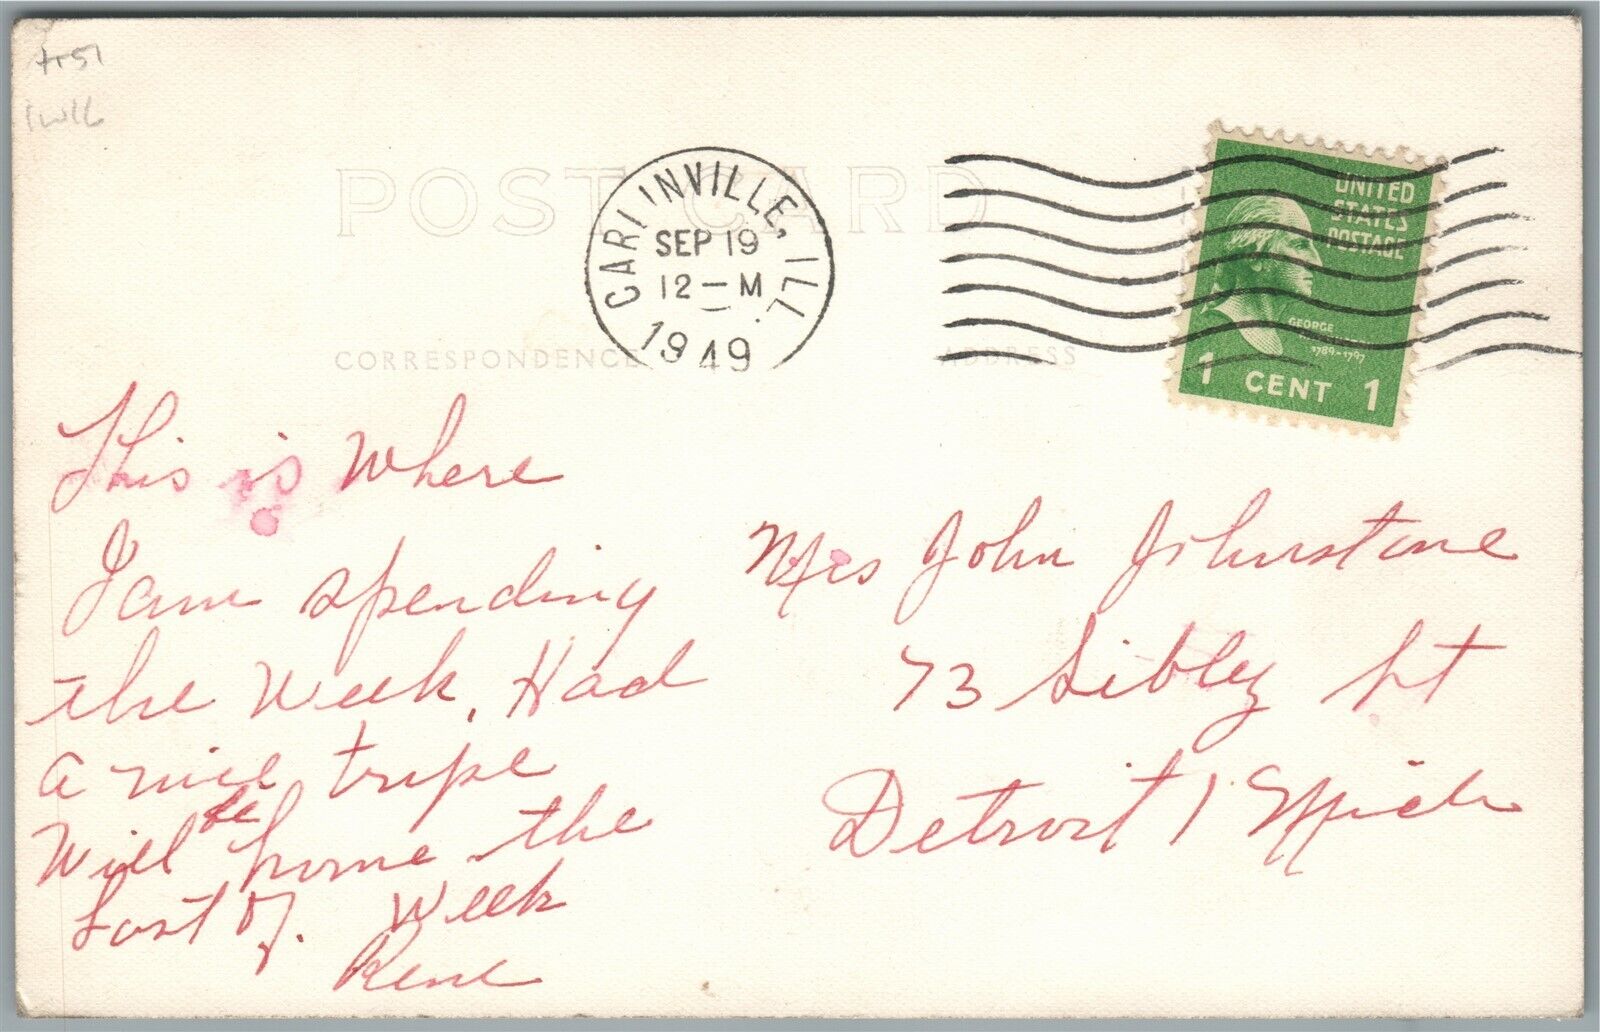 POST CARD
CARLINVILLE, ILL.
SEP 19
12 — M
1949
UNITED
STATES
POSTAGE
GEORGE
1789-1797
1 CENT 1
CORRESPONDENCE
ADDRESS
This is where
I am spending
the week, Had
a nice tripe
Will be home the
Last of. Week
Rene
Mrs John Johnstone
73 Sibley St
Detroit 1 Mich